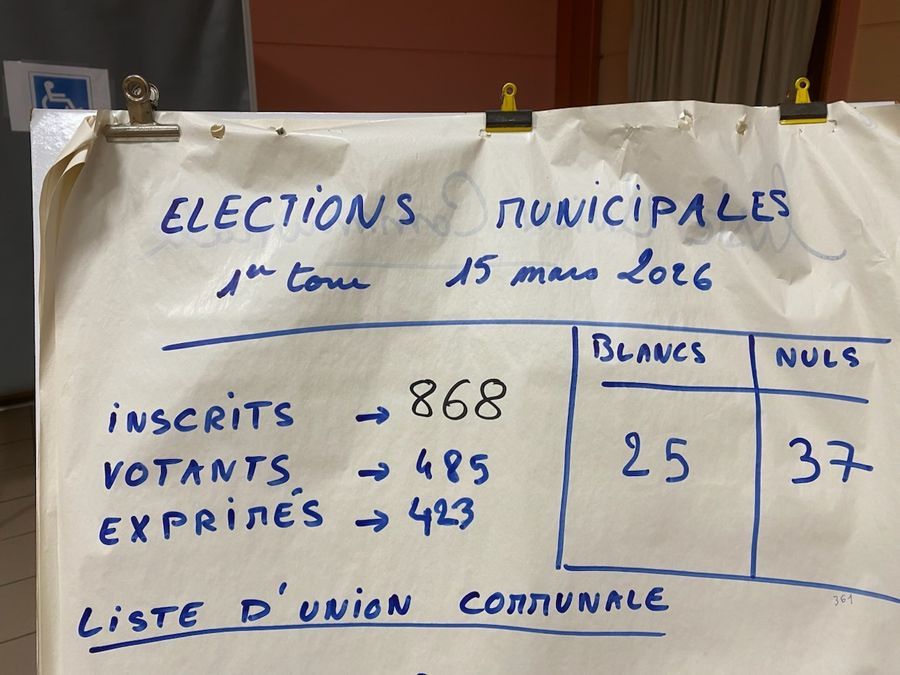 ELECTIONS MUNICIPALES
1er tour 15 mars 2026
BLANCS NULS
INSCRITS → 868
VOTANTS → 485
EXPRIMÉS → 423
25 37
LISTE D'UNION COMMUNALE
361